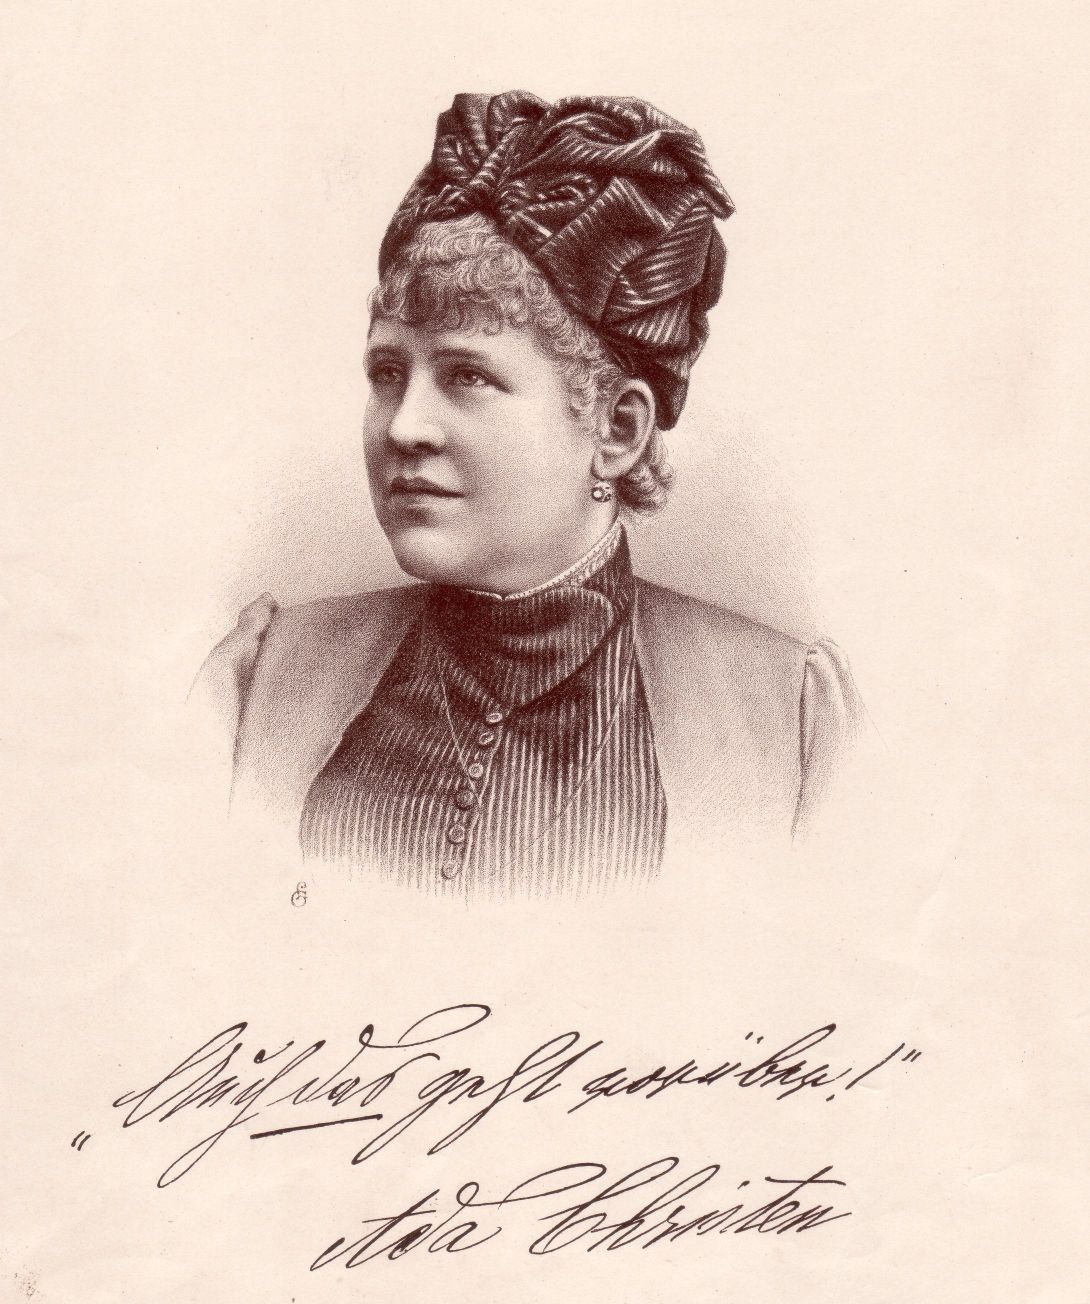 „Auch das geht vorüber!“
Ada Christen